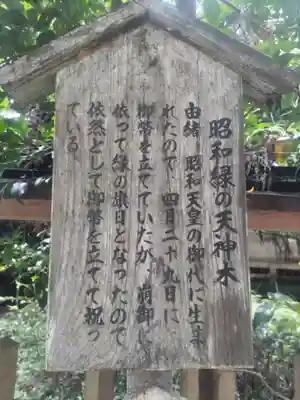 昭和緑の天神木
由緒 昭和天皇の御代に生ま
れたので 四月二十九日に
御幣を立てていたが、崩御に
依って緑の旗日となったので
依然として御幣を立てて祝っ
ている。